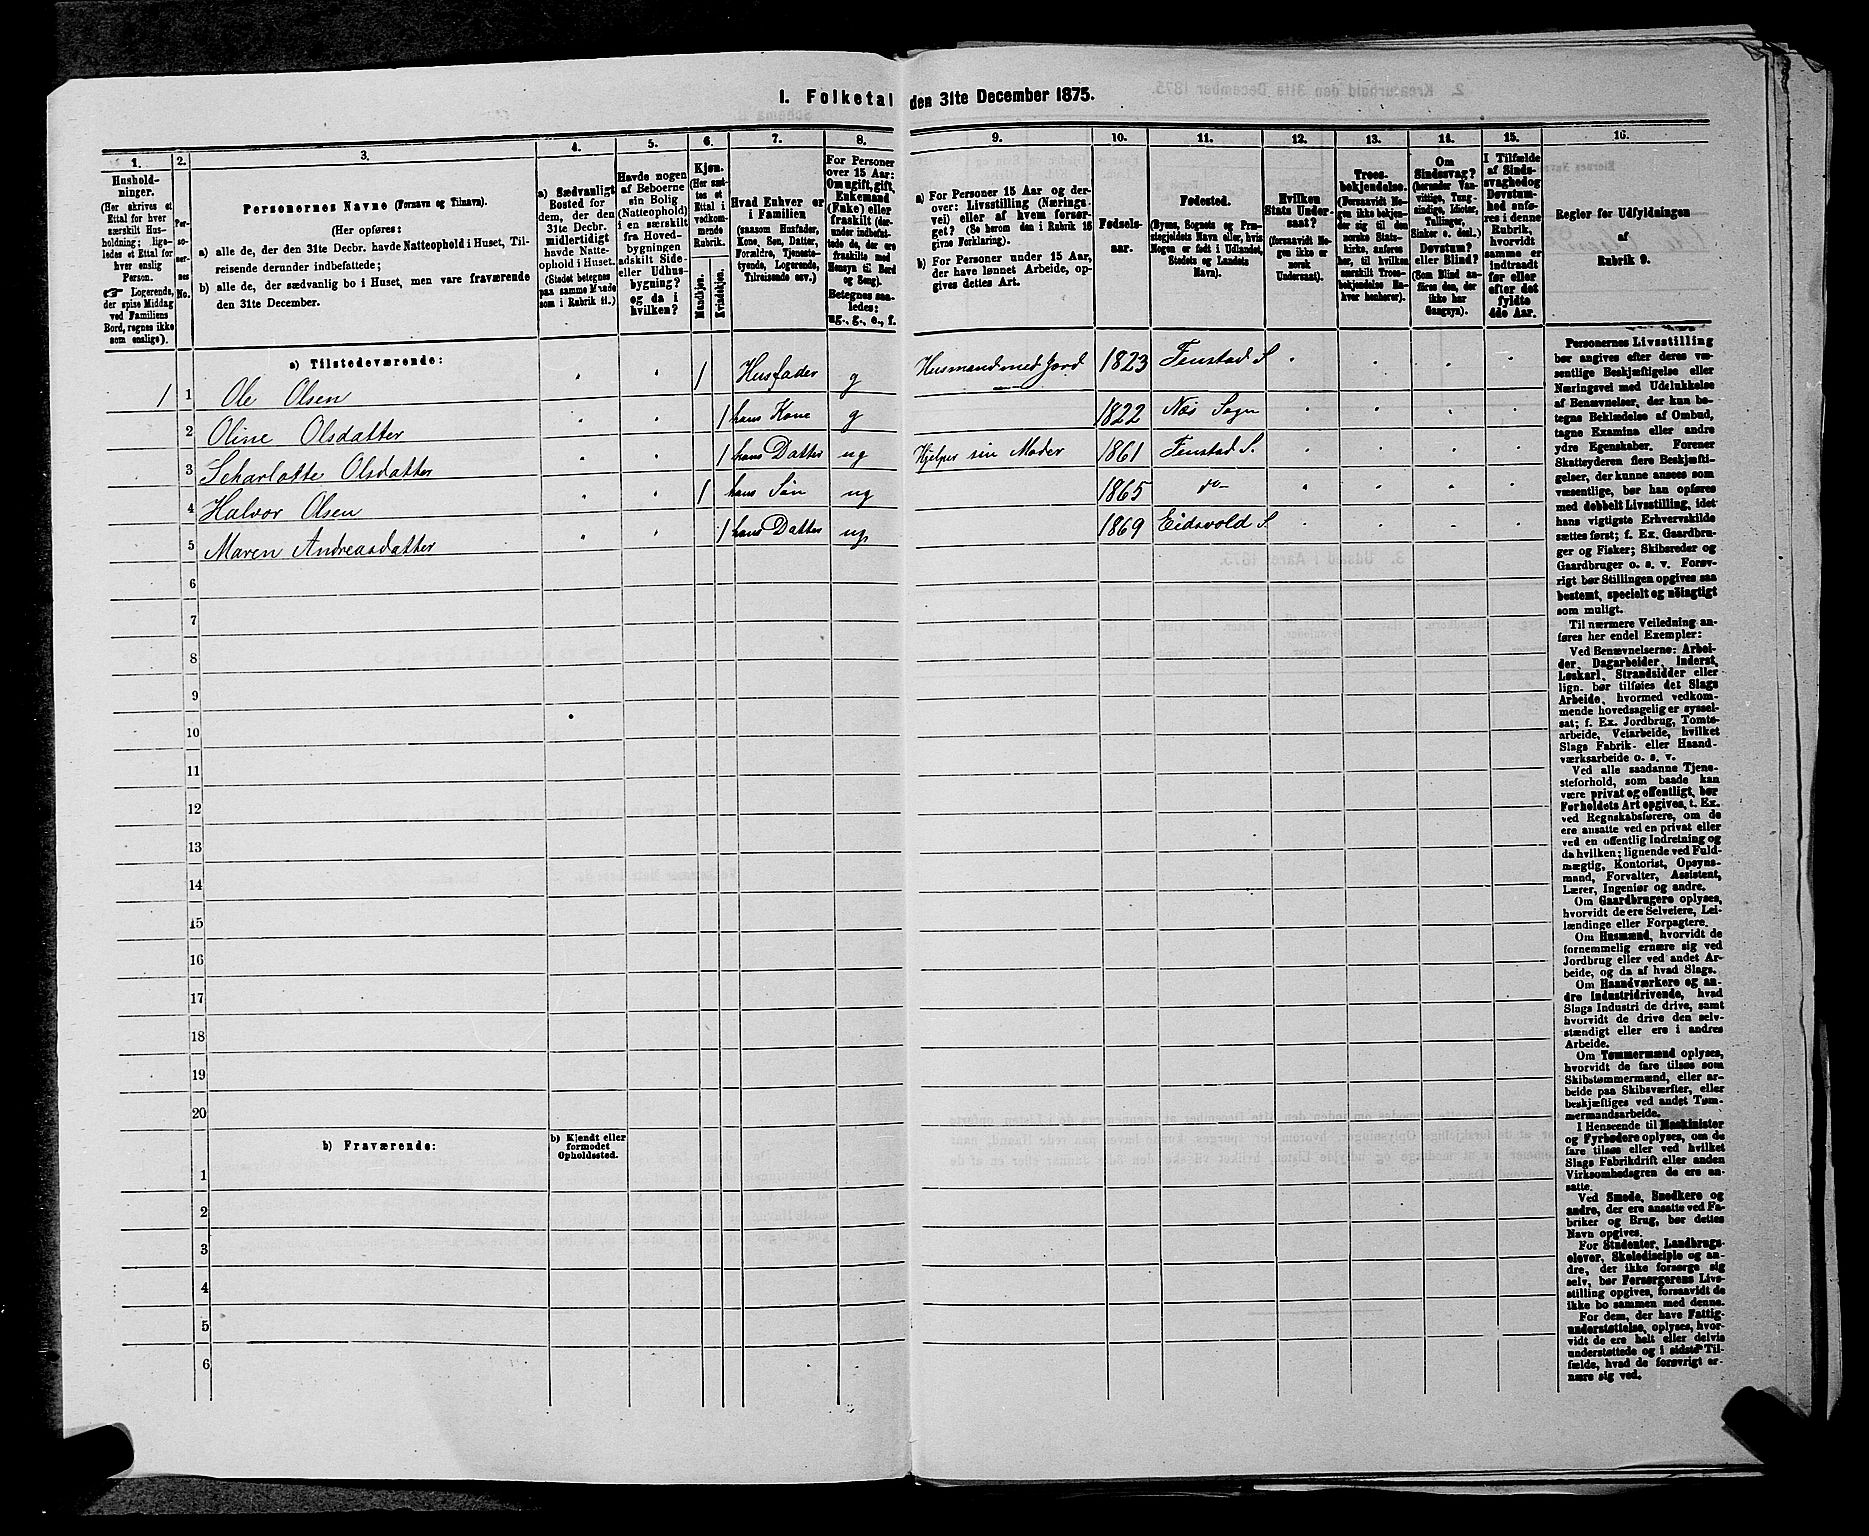 1. Folketal den 31te December 1875.
1.
Hushold-
ninger.
(Her skrives et
Ettal for hver
særskilt Hus-
holdning; lige-
ledes et Ettal for
hver enslig
Person.
☞ Logerende,
der spise Middag
ved Familiens
Bord, regnes ikke
som enslige).
2.
Per-
so-
ner-
nes
No.
3.
Personernes Navne (Fornavn og Tilnavn).
(Her opføres:
a) alle de, der den 31te Decbr. havde Natteophold i Huset, Til-
reisende derunder indbefattede;
b) alle de, der sædvanlig bo i Huset, men vare fraværende
den 31te December.
4.
a) Sædvanligt
Bosted for
dem, der den
31te Decbr.
midlertidigt
havde Natte-
ophold i Huset.
(Stedet betegnes
paa samme Maade
som i Rubrik 11.)
5.
Havde nogen
af Beboerne
ein Bolig
(Natteophold)
i en særskilt
fra Hoved-
bygningen
adskilt Side-
eller Udhus-
bygning?
og da i
hvilken?
6.
Kjøn.
(Her sæt-
tes et
Ettal i
vedkom-
mende
Rubrik.
Mandkjøn.
Kvindekjøn.
7.
Hvad Enhver er
i Familien
(saasom Husfader,
Kone, Søn, Datter,
Forældre, Tjeneste-
tyende, Logerende,
Tilreisende osv.)
8.
For Personer
over 15 Aar:
Om ugift, gift,
Enkemand
(Enke) eller
fraskilt (her-
under indbefat-
tede de, der ere
fraskilte med
Hensyn til Bord
og Seng).
Betegnes saa-
ledes:
ug., g., e., f.
9.
a) For Personer 15 Aar og der-
over: Livsstilling (Nærings-
vei) eller af hvem forsør-
get? (Se herom den i Rubrik 16
givne Forklaring).
b) For Personer under 15 Aar,
der have lønnet Arbeide, op-
gives dettes Art.
10.
Fødsels-
aar.
11.
Fødested.
(Byens, Sognets og Præ-
stegjeldets Navn eller, hvis
Nogen er født i Udlandet,
Stedets og Landets
Navn).
12.
Hvilken
Stats Under-
saat?
(forsaavidt No-
gen ikke er
norsk
Undersaat).
13.
Troes-
bekjendelse.
(Forsaavidt No-
gen ikke bekjen-
der sig til den
norske Stats-
kirke, anføres
her, til hvilken
særskilt Troes-
bekjendelse En-
hver henhører).
14.
Om
Sindssvag?
(herunder Van-
vittige, Tung-
sindige, Idioter,
Tullinger,
Sinker o. desl.)
Døvstum?
eller Blind?
(Som Blind an-
føres den, der
ikke har
Gangsyn).
15.
I Tilfælde
af Sinds-
svaghed og
Døvstum-
hed anfø-
res i denne
Rubrik,
hvorvidt
samme er
indtraadt
før eller
efter det
fyldte
4de Aar.
16.
Regler for Udfyldningen
af
Rubrik 9.
a) Tilstedeværende:
1 1 Ole Olsen 1 Husfader g Husmand med Jord 1823 Fenstad S
2 Oline Olsdatter 1 hans Kone g 1822 Næs Sogn
3 Scharlotte Olsdatter 1 hans Datter ug Hjelper sin Moder 1861 Fenstad S.
4 Halvor Olsen 1 hans Søn ug 1865 do
5 Maren Andreasdatter 1 hans Datter ug 1869 Eidsvold S
6
7
8
9
10
11
12
13
14
15
16
17
18
19
20
b) Fraværende:
b) Kjendt eller
formodet
Opholdssted.
1
2
3
4
5
6
Personernes Livsstilling
bør angives efter deres væ-
sentlige Beskjæftigelse eller
Næringsvei med Udelukkelse
af Benævnelser, der kun be-
tegne Beklædelse af Ombud,
tagne Examina eller andre
ydre Egenskaber. Forener
Skatteyderen flere Beskjæfti-
gelser, der kunne ansees som
væsentlige, bør han opføres
med dobbelt Livsstilling, idet
hans vigtigste Erhvervskilde
sættes først; f. Ex. Gaardbru-
ger og Fisker; Skibsreder og
Gaardbruger o. s. v. Forøv-
rigt bør Stillingen opgives saa
bestemt, specielt og nöiagtigt
som muligt.
Til nærmere Veiledning an-
føres her endel Exempler:
Ved Benævnelserne: Arbei-
der, Dagarbeider, Inderst,
Løskarl, Strandsidder eller
lign. bør tilføies det Slags
Arbeide, hvormed vedkom-
mende hovedsagelig er syssel-
sat; f. Ex. Jordbrug, Tomte-
arbeide, Veiarbeide, hvilket
Slags Fabrik- eller Haand-
værksarbeide o. s. v.
Ved alle saadanne Tjene-
steforhold, som baade kan
være privat og offentligt, bør
Forholdets Art opgives, t. Ex.
ved Regnskabsførere, om de
ere ansatte ved en privat eller
ved en offentlig Indretning og
da hvilken; lignende ved Fuld-
mægtig, Kontorist, Opsyns-
mand, Forvalter, Assistent,
Lærer, Ingeniør og andre.
Om Gaardbrugere oplyses,
hvorvidt de ere Selveiere, Lei-
lændinge eller Forpagtere.
Om Husmænd, hvorvidt de
fornemmelig ernære sig ved
Jordbrug eller ved andet Ar-
beide, og da af hvad Slags.
Om Haandværkere og an-
dre Industridrivende, hvad
Slags Industri de drive, samt
hvorvidt de drive den selv-
stændigt eller ere i andres
Arbeide.
Om Tømmermænd oplyses,
hvorvidt de fare tilsøs som
Skibstømmermænd, eller ar-
beide paa Skibsværfter, eller
beskjæftiges ved andet Tøm-
mermandsarbeide.
I Henseende til Maskinister
og Fyrbødere oplyses, om de
fare tilsøs eller ved hvilket
Slags Fabrikdrift eller anden
Virksomhedsgren de ere an-
satte.
Ved Smede, Snedkere og
andre, der ere ansatte ved Fa-
briker og Brug, bør dettes
Navn opgives.
For Studenter, Landbrugs-
elever, Skoledisciple og an-
dre, der ikke forsørge sig
selv, bør Forsørgerens Livs-
stilling opgives, forsaavidt de
ikke bo sammen med denne.
For dem, der have Fattig-
understøttelse, oplyses, hvor-
vidt de ere helt eller delvis
understøttede og i sidste Til-
fælde, hvad de forøvrigt er-
nære sig ved.